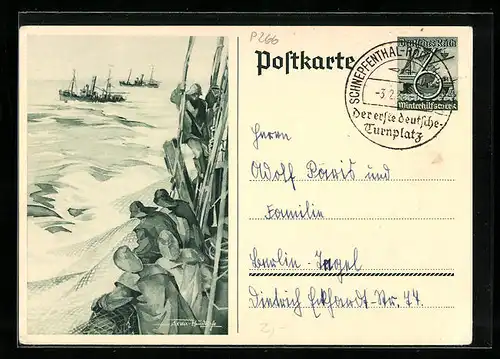 P266
Postkarte
Deutsches Reich
6
Winterhilfswerk
SCHNEPFENTHAL-
-3.2.
Der erste deutsche-
Turnplatz
Herrn
Adolf Paris und
Familie
Berlin-Tegel
Dietrich Eckhardt-Str. 44.
2,-